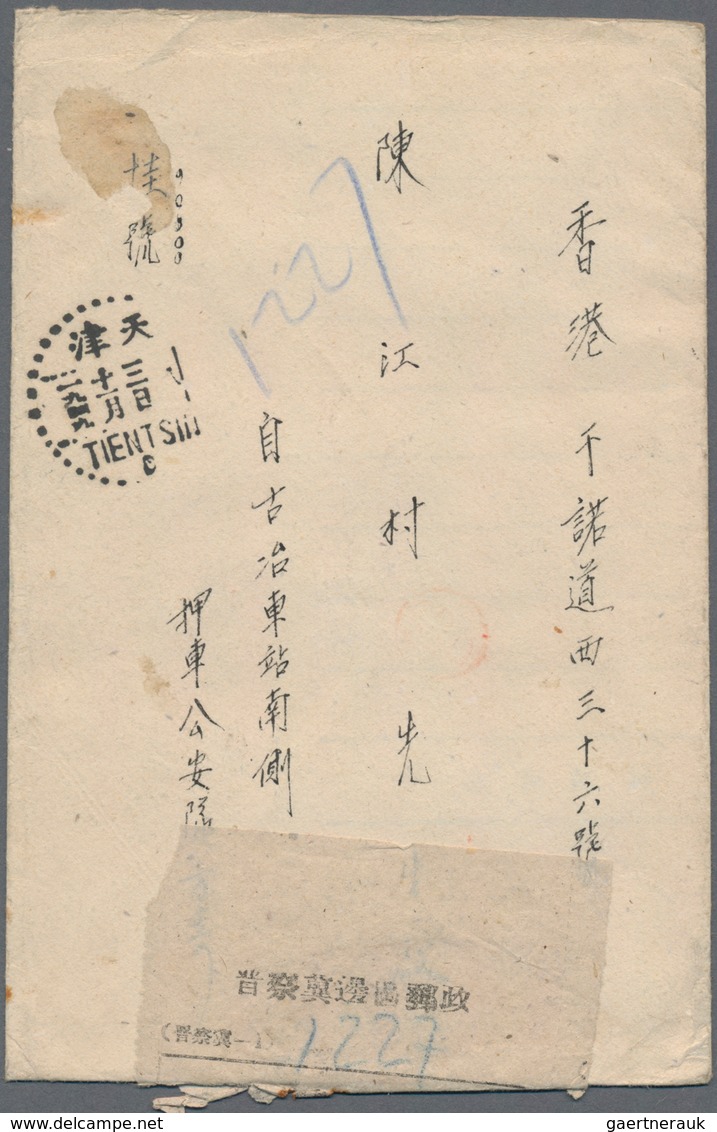 香港干諾道西三十六號
陳江村先
自古冶車站南側
押車公安隊
掛號
1227
天津
三日
十一月
一九四九
TIENTSIN
C
晋察冀邊區郵政
(晋察冀—1)
1227
gaertnerauk